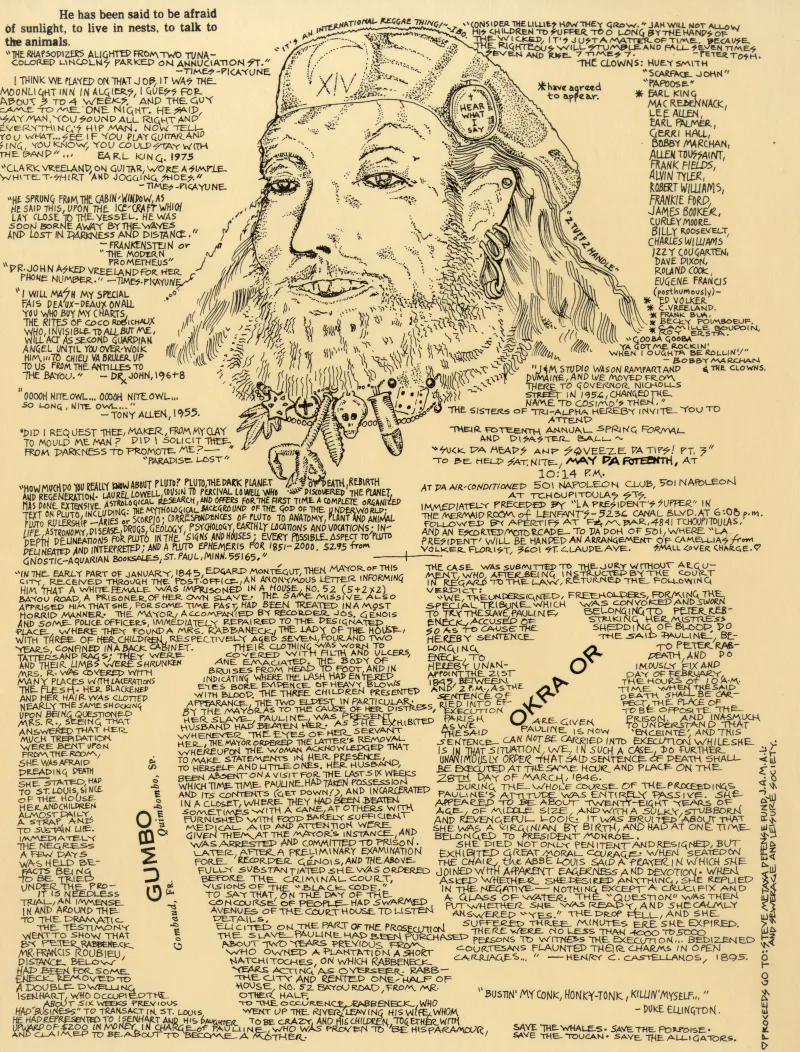 He has been said to be afraid
of sunlight, to live in nests, to talk to
the animals.
"THE RHAPSODIZERS ALIGHTED FROM TWO TUNA-
COLORED LINCOLNS PARKED ON ANNUCIATION ST."
-TIMES-PICAYUNE
I THINK WE PLAYED ON THAT JOB, IT WAS THE
MOONLIGHT INN IN ALGIERS, I GUESS FOR
ABOUT 3 TO 4 WEEKS, AND THE GUY
CAME TO ME ONE NIGHT. HE SAID,
"SAY MAN, YOU SOUND ALL RIGHT AND
EVERYTHING'S HIP MAN. NOW TELL
YOU WHAT... SEE IF YOU PLAY GUITAR AND
SING, YOU KNOW, YOU COULD STAY WITH
THE BAND"... EARL KING, 1975
"CLARK VREELAND, ON GUITAR, WORE A SIMPLE
WHITE T-SHIRT AND JOGGING SHOES."
-TIMES-PICAYUNE
"HE SPRUNG FROM THE CABIN-WINDOW, AS
HE SAID THIS, UPON THE ICE-CRAFT WHICH
LAY CLOSE TO THE VESSEL. HE WAS
SOON BORNE AWAY BY THE WAVES
AND LOST IN DARKNESS AND DISTANCE."
-FRANKENSTEIN OR
"THE MODERN
PROMETHEUS"
"DR. JOHN ASKED VREELAND FOR HER
PHONE NUMBER." -TIMES-PICAYUNE
"I WILL MASH MY SPECIAL
FAIS DEAUX-DEAUX ON ALL
YOU WHO BUY MY CHARTS,
THE RITES OF COCO ROBICHAUX
WHO, INVISIBLE TO ALL BUT ME,
WILL ACT AS SECOND GUARDIAN
ANGEL UNTIL YOU OVER-WORK
HIM...
TO US FROM THE ANTILLES TO
THE BAYOU." - DR. JOHN, 196+8
"OOOOH NITE OWL... OOOH NITE OWL...
SO LONG, NITE OWL..."
-TONY ALLEN, 1955.
"DID I REQUEST THEE, MAKER, FROM MY CLAY
TO MOULD ME MAN? DID I SOLICIT THEE
FROM DARKNESS TO PROMOTE ME?-
"PARADISE LOST"
"IT'S AN INTERNATIONAL REGGAE THING!"
XIV
I HEAR WHAT I SAY
"2 TUFF 2 HANDLE"
"CONSIDER THE LILLIES HOW THEY GROW." JAH WILL NOT ALLOW
HIS CHILDREN TO SUFFER TOO LONG BY THE HANDS OF
THE WICKED, IT'S JUST A MATTER OF TIME, BECAUSE
THE RIGHTEOUS WILL STUMBLE AND FALL SEVEN TIMES
SEVEN AND RISE 7 TIMES 7. PETER TOSH.
THE CLOWNS: HUEY SMITH
"SCARFACE JOHN"
"PAPOOSE"
*have agreed
to appear.
* EARL KING
MAC REBENNACK,
LEE ALLEN,
EARL PALMER,
GERRI HALL,
BOBBY MARCHAN,
ALLEN TOUSSAINT,
FRANK FIELDS,
ALVIN TYLER,
ROBERT WILLIAMS,
FRANKIE FORD,
JAMES BOOKER,
CURLEY MOORE
BILLY ROOSEVELT,
CHARLES WILLIAMS
IZZY COUGARTEN,
DAVE DIXON,
ROLAND COOK,
EUGENE FRANCIS
(posthumously)-
* ED VOLKER
* C. VREELAND
* FRANK BUA
* BECKY POIMBOEUF,
* CAMILLE BOUDOIN,
* ROD ERSTA.
"GOOBA GOOBA
YA GOT ME ROCKIN'
WHEN I OUGHTA BE ROLLIN!"
-BOBBY MARCHAN
& THE CLOWNS.
"J&M STUDIO WAS ON RAMPART AND
DUMAINE, AND WE MOVED FROM
THERE TO GOVERNOR NICHOLLS
STREET IN 1956, CHANGED THE
NAME TO COSIMO'S THEN."
THE SISTERS OF TRI-ALPHA HEREBY INVITE YOU TO
ATTEND
THEIR FOTEENTH ANNUAL SPRING FORMAL
AND DISASTER BALL ~
"SUCK DA HEADS AND SQUEEZE DA TIPS! PT. 3"
TO BE HELD SAT. NITE, MAY DA FOTEENTH, AT
10:14 P.M.
AT DA AIR-CONDITIONED 501 NAPOLEON CLUB, 501 NAPOLEON
AT TCHOUPITOULAS STS.
IMMEDIATELY PRECEDED BY "LA PRESIDENT'S SUPPER" IN
THE MERMAID ROOM OF LENFANT'S - 5236 CANAL BLVD. AT 6:08 P.M.
FOLLOWED BY APERTIFS AT F&M BAR, 4841 TCHOUPITOULAS,
AND AN ESCORTED MOTORCADE TO DA DOH OF 501, WHERE "LA
PRESIDENT" WILL BE HANDED AN ARRANGEMENT OF CAMELLIAS from
VOLKER FLORIST, 3601 ST. CLAUDE AVE. SMALL COVER CHARGE.♡
"HOW MUCH DO YOU REALLY KNOW ABOUT PLUTO? PLUTO, THE DARK PLANET OF DEATH, REBIRTH
AND REGENERATION. LAUREL LOWELL, COUSIN TO PERCIVAL LOWELL WHO DISCOVERED THE PLANET,
HAS DONE EXTENSIVE ASTROLOGICAL RESEARCH, AND OFFERS FOR THE FIRST TIME A COMPLETE ORGANIZED
TEXT ON PLUTO, INCLUDING: THE MYTHOLOGICAL BACKGROUND OF THE GOD OF THE UNDERWORLD;
PLUTO RULERSHIP - ARIES OR SCORPIO; CORRESPONDENCES OF PLUTO TO ANATOMY, PLANT AND ANIMAL
LIFE, ASTRONOMY, DISEASE, DRUGS, GEOLOGY, PSYCHOLOGY, EARTHLY LOCATIONS AND VOCATIONS; IN-
DEPTH DELINEATIONS FOR PLUTO IN THE SIGNS AND HOUSES; EVERY POSSIBLE ASPECT TO PLUTO
DELINEATED AND INTERPRETED; AND A PLUTO EPHEMERIS FOR 1851-2000. $2.95 from
GNOSTIC-AQUARIAN BOOKSALES, ST. PAUL, MINN. 55165."
"IN THE EARLY PART OF JANUARY, 1845, EDGARD MONTEGUT, THEN MAYOR OF THIS
CITY, RECEIVED THROUGH THE POST-OFFICE, AN ANONYMOUS LETTER INFORMING
HIM THAT A WHITE FEMALE WAS IMPRISONED IN A HOUSE, NO. 52 (5+2x2)
BAYOU ROAD, A PRISONER OF HER OWN SLAVE. THE SAME MISSIVE ALSO
APPRISED HIM THAT SHE, FOR SOME TIME PAST, HAD BEEN TREATED IN A MOST
HORRID MANNER. THE MAYOR, ACCOMPANIED BY RECORDER JOS. GENOIS
AND SOME POLICE OFFICERS, IMMEDIATELY REPAIRED TO THE DESIGNATED
PLACE, WHERE THEY FOUND A MRS. RABBENECK, THE LADY OF THE HOUSE,
WITH THREE OF HER CHILDREN, RESPECTIVELY AGED SEVEN, FOUR AND TWO
YEARS, CONFINED IN A BACK CABINET. THEIR CLOTHING WAS WORN TO
TATTERS AND RAGS; THEY WERE COVERED WITH FILTH AND ULCERS,
AND THEIR LIMBS WERE SHRUNKEN AND EMACIATED. THE BODY OF
MRS. R. WAS COVERED WITH BRUISES FROM HEAD TO FOOT, AND IN
MANY PLACES WITH LACERATIONS INDICATING WHERE THE LASH HAD ENTERED
THE FLESH. HER BLACKENED EYES BORE EVIDENCE OF HEAVY BLOWS
AND HER HAIR WAS CLOTTED WITH BLOOD. THE THREE CHILDREN PRESENTED
NEARLY THE SAME SHOCKING APPEARANCE, THE TWO ELDEST IN PARTICULAR.
UPON BEING QUESTIONED BY THE MAYOR AS TO THE CAUSE OF HER DISTRESS,
MRS. R., SEEING THAT HER SLAVE, PAULINE, WAS PRESENT
ANSWERED THAT HER HUSBAND HAD BEATEN HER, AS SHE EXHIBITED
MUCH TREPIDATION WHENEVER THE EYES OF HER SERVANT
WERE BENT UPON HER, THE MAYOR ORDERED THE LATTER'S REMOVAL
FROM THE ROOM, WHEREUPON THE WOMAN ACKNOWLEDGED THAT
SHE WAS AFRAID TO MAKE STATEMENTS IN HER PRESENCE
DREADING DEATH TO HERSELF AND LITTLE ONES, HER HUSBAND,
SHE STATED, HAD BEEN ABSENT ON A VISIT FOR THE LAST SIX WEEKS
TO ST. LOUIS, SINCE WHICH TIME PAULINE HAD TAKEN POSSESSION
OF THE HOUSE AND ITS CONTENTS (GET DOWN!), AND INCARCERATED
HER AND CHILDREN IN A CLOSET, WHERE THEY HAD BEEN BEATEN
ALMOST DAILY, SOMETIMES WITH A CANE, AT OTHERS WITH
A STRAP, AND FURNISHED WITH FOOD BARELY SUFFICIENT
TO SUSTAIN LIFE. MEDICAL AID AND ATTENTION WERE
IMMEDIATELY GIVEN THEM, AT THE MAYOR'S INSTANCE, AND
THE NEGRESS WAS ARRESTED AND COMMITTED TO PRISON.
A FEW DAYS LATER, AFTER A PRELIMINARY EXAMINATION
WAS HELD BE- FORE RECORDER GENOIS, AND THE ABOVE
FACTS BEING FULLY SUBSTANTIATED SHE WAS ORDERED
TO BE TRIED BEFORE THE CRIMINAL COURT,
UNDER THE PRO- VISIONS OF THE "BLACK CODE".
IT IS NEEDLESS TO SAY THAT, ON THE DAY OF THE
TRIAL, AN IMMENSE CONCOURSE OF PEOPLE HAD SWARMED
IN AND AROUND THE AVENUES OF THE COURT HOUSE TO LISTEN
TO THE DRAMATIC DETAILS.
THE TESTIMONY ELICITED ON THE PART OF THE PROSECUTION
WENT TO SHOW THAT THE SLAVE PAULINE HAD BEEN PURCHASED
BY PETER RABBENECK ABOUT TWO YEARS PREVIOUS FROM
MR. FRANCIS ROUBIEU, WHO OWNED A PLANTATION A SHORT
DISTANCE BELOW NATCHITOCHES, ON WHICH RABBENECK
HAD BEEN FOR SOME YEARS ACTING AS OVERSEER. RABB-
ENECK REMOVED TO THE CITY AND RENTED ONE-HALF OF
A DOUBLE DWELLING HOUSE, NO. 52 BAYOU ROAD, FROM MR.
ISENHART, WHO OCCUPIED THE OTHER HALF.
ABOUT SIX WEEKS PREVIOUS TO THE OCCURENCE, RABBENECK, WHO
HAD "BUSINESS" TO TRANSACT IN ST. LOUIS, WENT UP THE RIVER, LEAVING HIS WIFE, WHOM
HE HAD REPRESENTED TO ISENHART AND HIS DAUGHTER TO BE CRAZY, AND HIS CHILDREN, TOGETHER WITH
UPWARD OF $200 IN MONEY, IN CHARGE OF PAULINE, WHO WAS PROVEN TO BE HIS PARAMOUR,
AND CLAIMED TO BE ABOUT TO BECOME A MOTHER.
GUMBO
Quimbombo, Sp.
Gombaud, Fr.
OKRA OR
THE CASE WAS SUBMITTED TO THE JURY WITHOUT ARGU-
MENT, WHO, AFTER BEING INSTRUCTED BY THE COURT
IN REGARD TO THE LAW, RETURNED THE FOLLOWING
VERDICT:
"WE, THE UNDERSIGNED, FREEHOLDERS, FORMING THE
SPECIAL TRIBUNE WHICH WAS CONVOKED AND SWORN
TO TRY THE SLAVE PAULINE, BELONGING TO PETER REB-
ENECK, ACCUSED OF STRIKING HER MISTRESS
SO AS TO CAUSE THE SHEDDING OF BLOOD, DO
HEREBY SENTENCE THE SAID PAULINE, BE-
LONGING TO PETER RAB-
ENECK, TO DEATH, AND DO
HEREBY UNAN- IMOUSLY FIX AND
APPOINT THE 21ST DAY OF FEBRUARY,
1845, BETWEEN THE HOURS OF 10 A.M.
AND 2 P.M., AS THE TIME WHEN THE SAID
SENTENCE OF DEATH SHALL BE CAR-
RIED INTO EF- FECT, THE PLACE OF
EXECUTION TO BE OPPOSITE THE
PARISH PRISON, AND INASMUCH
AS WE ARE GIVEN TO UNDERSTAND THAT
THE SAID PAULINE IS NOW "ENCEINTE", AND THIS
SENTENCE CAN NOT BE CARRIED INTO EXECUTION WHILE SHE
IS IN THAT SITUATION, WE, IN SUCH A CASE, DO FURTHER
UNANIMOUSLY ORDER THAT SAID SENTENCE OF DEATH SHALL
BE EXECUTED AT THE SAME HOUR AND PLACE ON THE
28TH DAY OF MARCH, 1846.
DURING THE WHOLE COURSE OF THE PROCEEDINGS
PAULINE'S ATTITUDE WAS ENTIRELY PASSIVE. SHE
APPEARED TO BE ABOUT TWENTY-EIGHT YEARS OF
AGE, OF MIDDLE SIZE, AND WITH A SULKY, STUBBORN
AND REVENGEFUL LOOK. IT WAS BRUITED ABOUT THAT
SHE WAS A VIRGINIAN BY BIRTH, AND HAD AT ONE TIME
BELONGED TO PRESIDENT MONROE.
SHE DIED NOT ONLY PENITENT AND RESIGNED, BUT
EXHIBITED GREAT MORAL COURAGE. WHEN SEATED ON
THE CHAIR, THE ABBE LOUIS SAID A PRAYER, IN WHICH SHE
JOINED WITH APPARENT EAGERNESS AND DEVOTION. WHEN
ASKED WHETHER SHE DESIRED ANYTHING, SHE REPLIED
IN THE NEGATIVE - NOTHING EXCEPT A CRUCIFIX AND
A GLASS OF WATER. THE "QUESTION" WAS THEN
PUT WHETHER SHE WAS READY, AND SHE CALMLY
ANSWERED "YES." THE DROP FELL, AND SHE
SUFFERED THREE MINUTES ERE SHE EXPIRED.
THERE WERE NO LESS THAN 4000 TO 5000
PERSONS TO WITNESS THE EXECUTION... BEDIZENED
COURTESANS FLAUNTED THEIR CHARMS IN OPEN
CARRIAGES..." - HENRY C. CASTELLANOS, 1895.
"BUSTIN' MY CONK, HONKY-TONK, KILLIN' MYSELF..."
- DUKE ELLINGTON.
SAVE THE WHALES. SAVE THE PORPOISE.
SAVE THE TOUCAN. SAVE THE ALLIGATORS.
♡PROCEEDS GO TO: STEVE METAWA DEFENSE FUND, J.A.M.A.L.
AND SEWERAGE AND LEISURE SOCIETY.